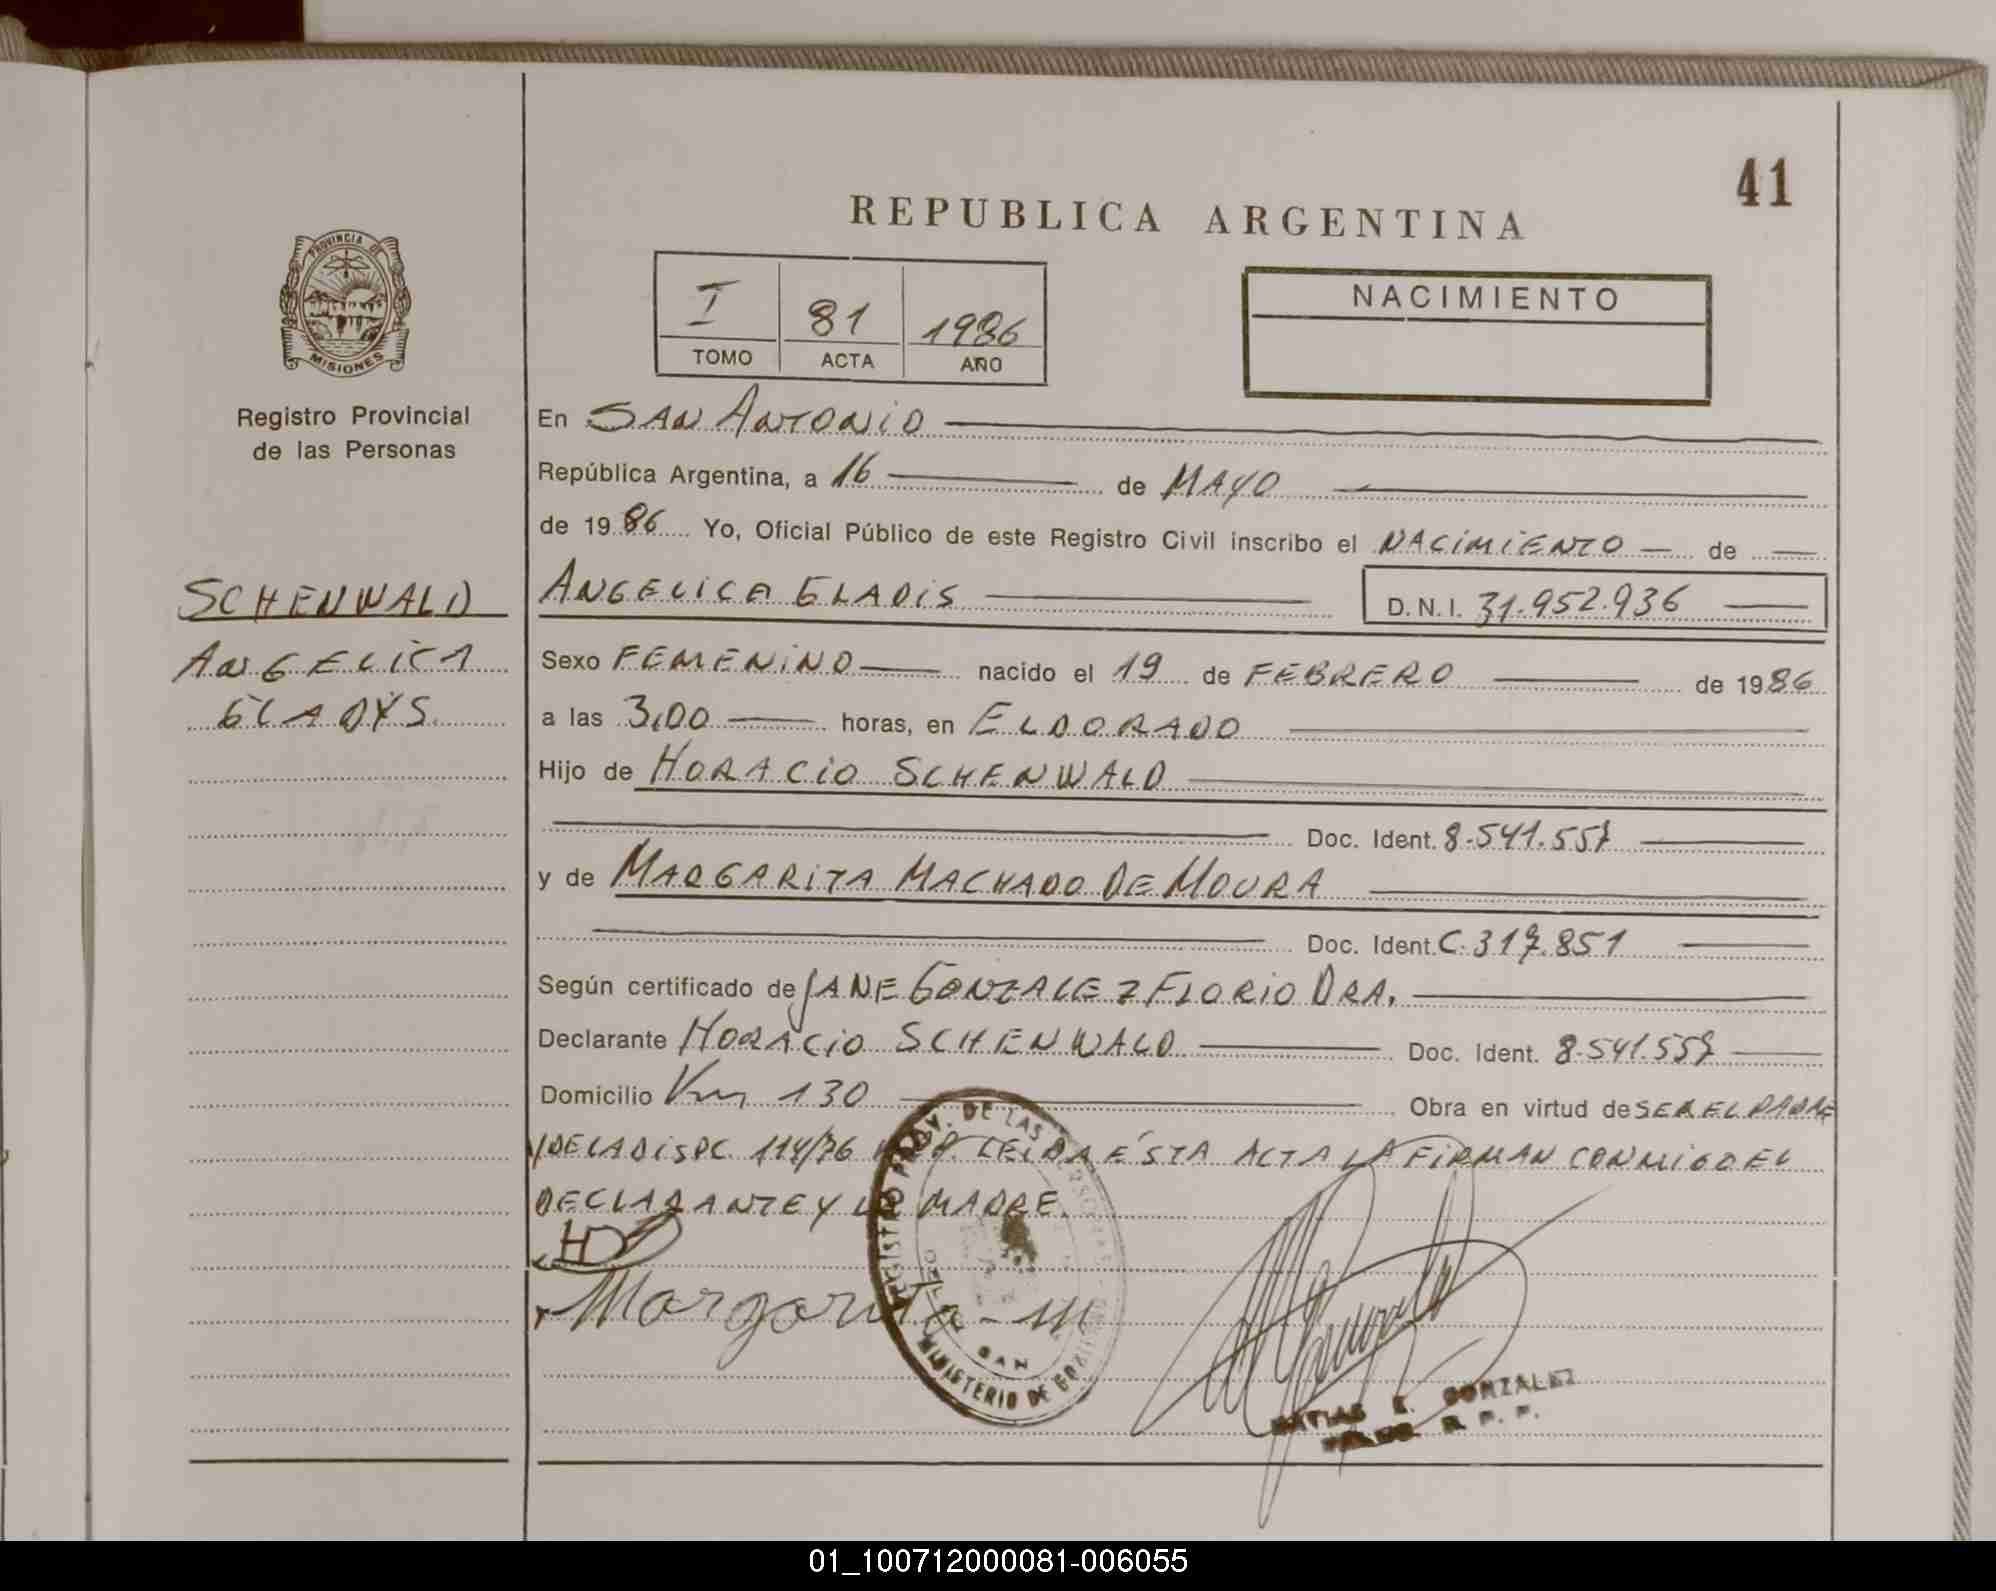 41
REPUBLICA ARGENTINA
PROVINCIA DE
MISIONES
Registro Provincial
de las Personas
I 81 1986
TOMO ACTA AÑO
NACIMIENTO
En SAN ANTONIO
República Argentina, a 16 de MAYO
de 1986 Yo, Oficial Público de este Registro Civil inscribo el NACIMIENTO de
SCHENWALD
ANGELICA
GLADYS
ANGELICA GLADIS D.N.I. 31.952.936
Sexo FEMENINO nacido el 19 de FEBRERO de 1986
a las 3,00 horas, en ELDORADO
Hijo de HORACIO SCHENWALD
Doc. Ident. 8.541.557
y de MARGARITA MACHADO DE MOURA
Doc. Ident. C. 317.851
Según certificado de JANE GONZALEZ FLORIO DRA.
Declarante HORACIO SCHENWALD Doc. Ident. 8.541.557
Domicilio Km 130 Obra en virtud de SER EL PADRE
Y DE LA DISPC. 114/76 LEIDA ÉSTA ACTA LA FIRMAN CONMIGO EL
DECLARANTE Y LA MADRE.
Margarita - M
REGISTRO PROV. DE LAS PERSONAS
SAN
MINISTERIO DE GOBIERNO
MATIAS E. GONZALEZ
R. P. P.
01_100712000081-006055